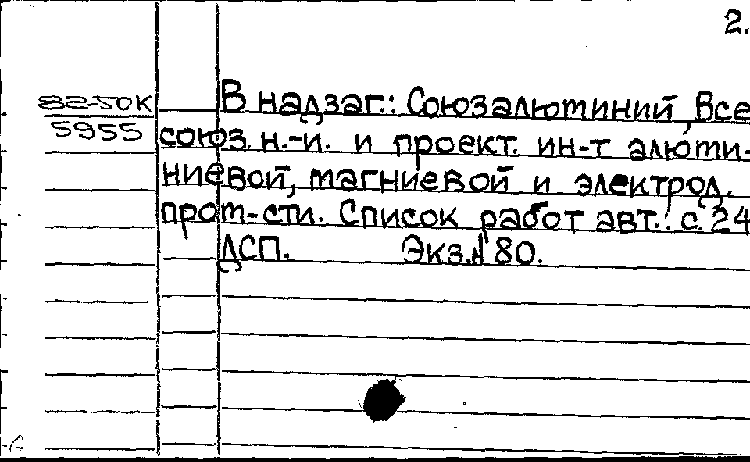 2.
82-50К
5955
В надзаг.: Союзалюминий, Все
союз. н.-и. и проект. ин-т алюми-
ниевой, магниевой и электрод.
пром-сти. Список работ авт.: с. 24
ДСП. Экз. № 80.